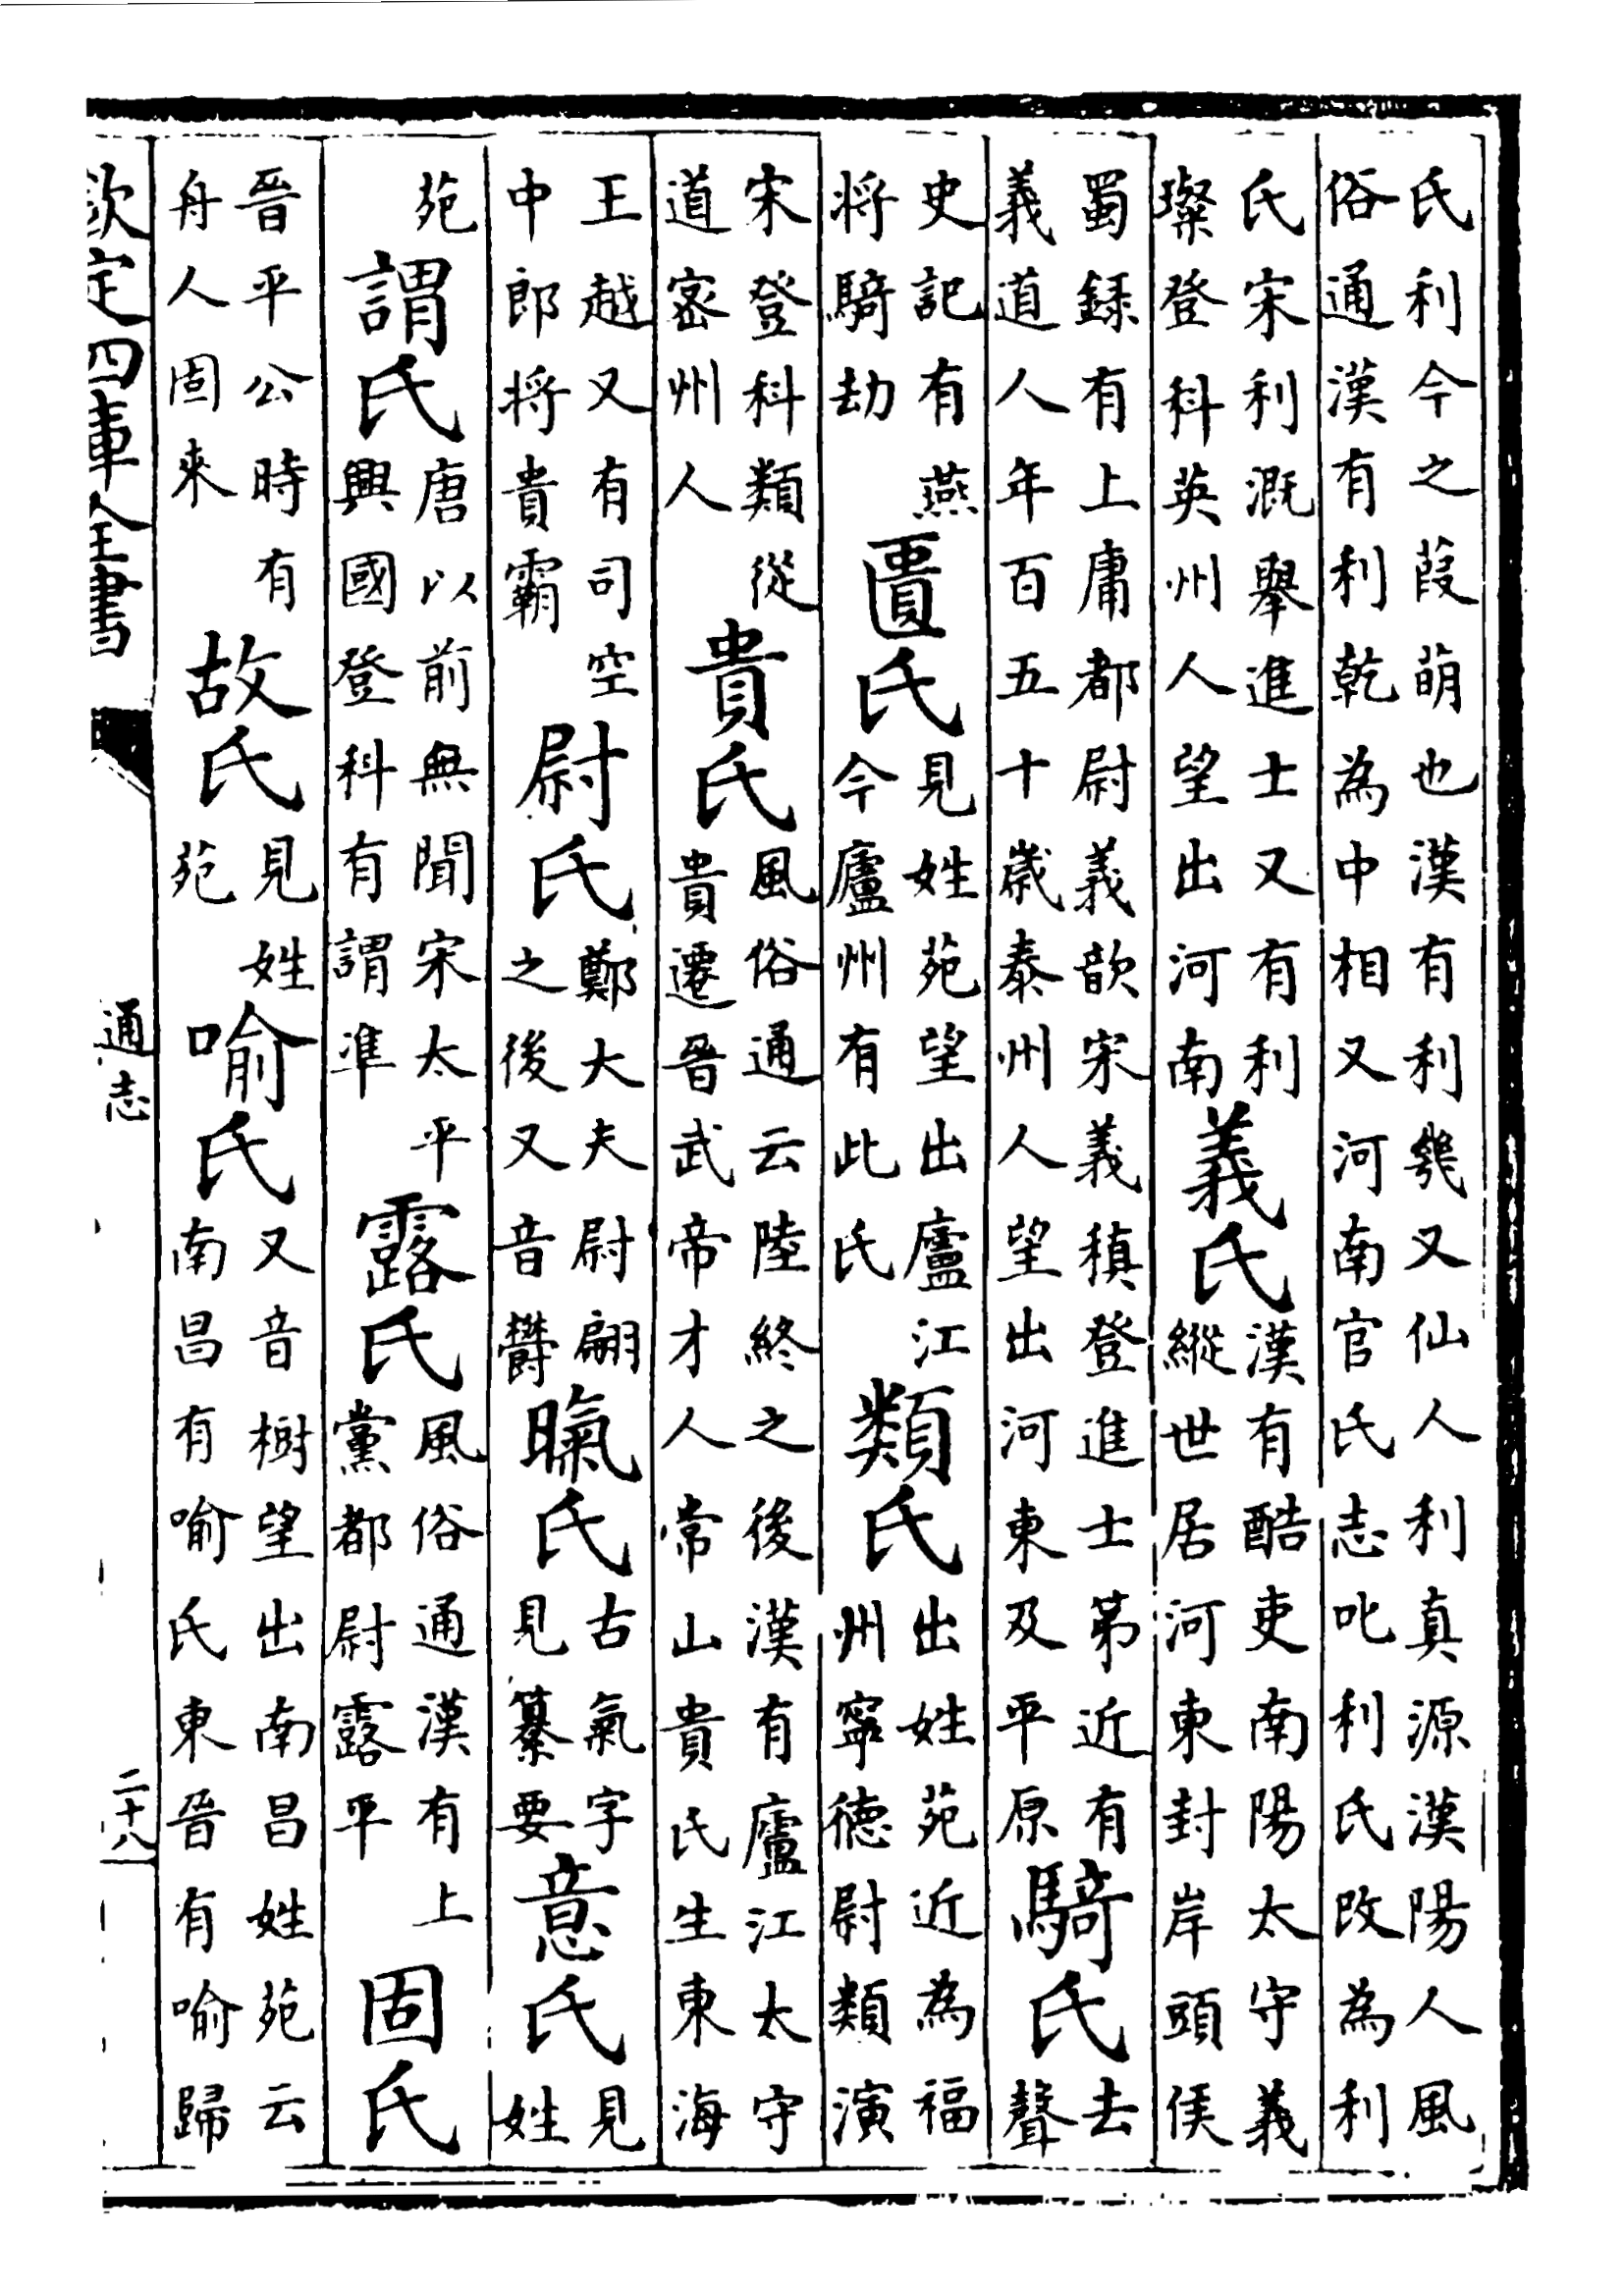 氏利今之葭萌也漢有利幾又仙人利真源漢陽人風
俗通漢有利乾為中相又河南官氏志叱利氏改為利
氏宋利漑舉進士又有利
璨登科英州人望出河南
義氏
漢有酷吏南陽太守義
縱世居河東封岸頭侯
蜀錄有上庸都尉義義歆宋義稹登進士第近有
義道人年百五十歲泰州人望出河東及平原
騎氏
去
聲
史記有燕
將騎劫
匱氏
見姓苑望出廬江
今廬州有此氏
類氏
出姓苑近為福
州寧德尉類演
宋登科類從
道密州人
貴氏
風俗通云陸終之後漢有廬江太守
貴遷晉武帝才人常山貴氏生東海
王越又有司空
中郎將貴霸
尉氏
鄭大夫尉翩
之後又音鬱
㬌氏
古氣字
見纂要
意氏
見
姓
苑
謂氏
唐以前無聞宋太平
興國登科有謂準
露氏
風俗通漢有上
黨都尉露平
固氏
晉平公時有
舟人固來
故氏
見姓
苑
喻氏
又音樹望出南昌姓苑云
南昌有喻氏東晉有喻歸
欽定四庫全書
通志
二十八